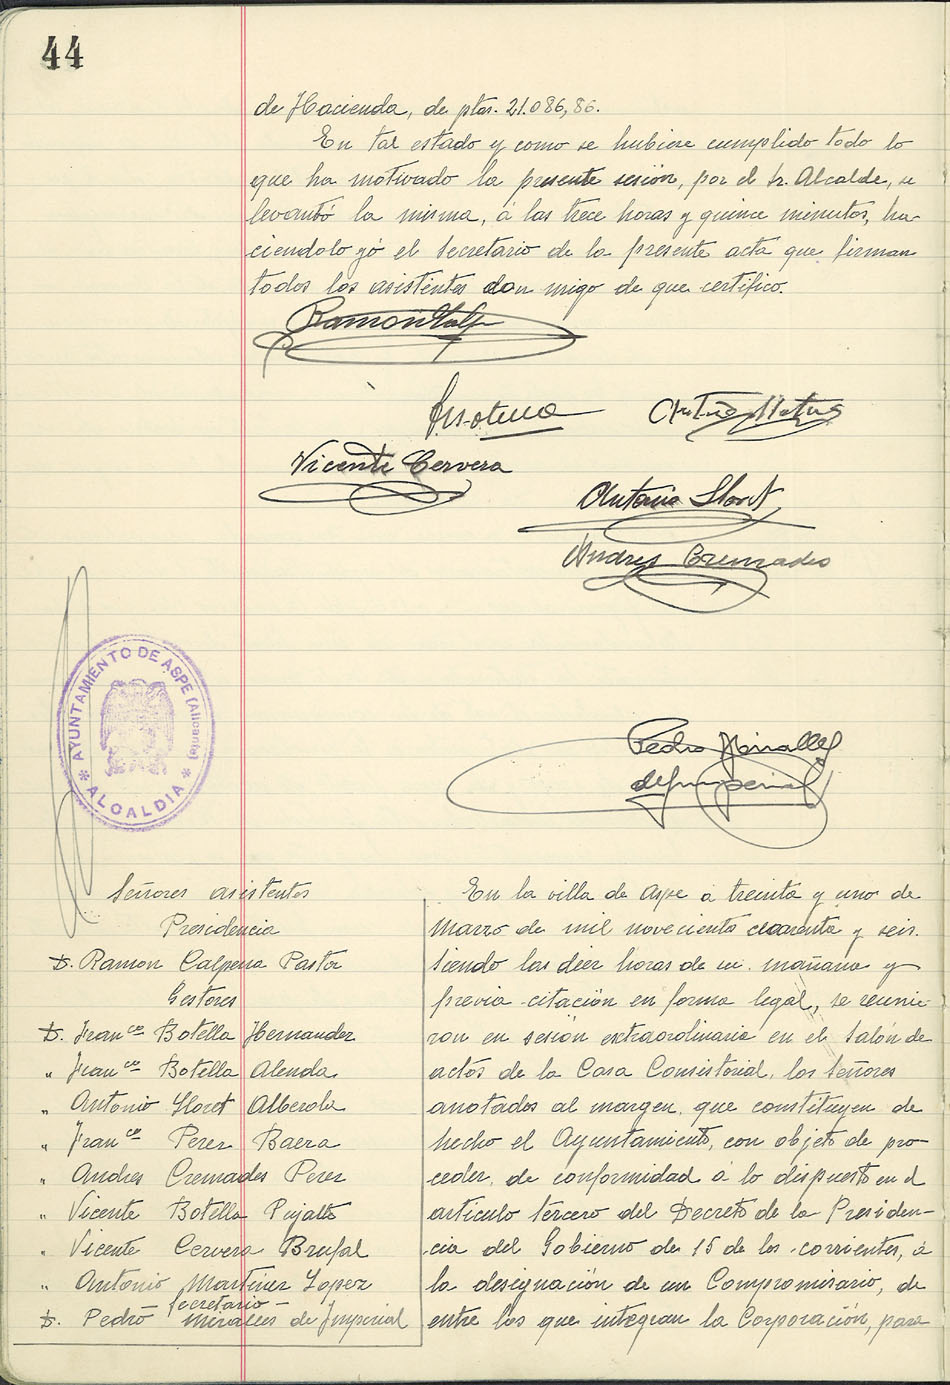 44
de Hacienda, de ptas. 21.086,86.
En tal estado y como se hubiese cumplido todo lo
que ha motivado la presente sesión, por el Sr. Alcalde, se
levantó la misma, á las trece horas y quince minutos, ha-
ciendolo yó el Secretario de la presente acta que firman
todos los asistentes con migo de que certifico.
Ramon Calp
Antonio
Vicente Cervera
Antonio Lloret
Andres Cremades
AYUNTAMIENTO DE ASPE (Alicante)
* ALCALDIA *
Pedro Miralles
de Imperial
Señores asistentes
Presidencia
D. Ramon Calpena Pastor
Gestores
D. Franco Botella Hernandez
" Franco Botella Alenda
" Antonio Lloret Alberola
" Franco Perez Baeza
" Andres Cremades Perez
" Vicente Botella Pujalte
" Vicente Cervera Brufal
" Antonio Martinez Lopez
Secretario -
D. Pedro Miralles de Imperial
En la villa de Aspe a treinta y uno de
Marzo de mil novecientos cuarenta y seis.
Siendo las diez horas de su mañana y
previa citación en forma legal, se reunie-
ron en sesión extraordinaria en el Salón de
actos de la Casa Consistorial, los Señores
anotados al margen, que constituyen de
hecho el Ayuntamiento, con objeto de pro-
ceder, de conformidad á lo dispuesto en el
articulo tercero del Decreto de la Presiden-
cia del Gobierno de 15 de los corrientes, á
la designación de un Compromisario, de
entre los que integran la Corporación, para